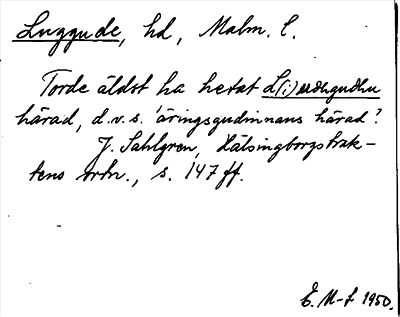 Luggude, hd, Malm. l.
Torde äldst ha hetat L(i)udhgudhu
härad, d.v.s. 'äringsgudinnans härad'?
J. Sahlgren, Hälsingborgstrak-
tens ortn., s. 147 ff.
E. M-f 1950.